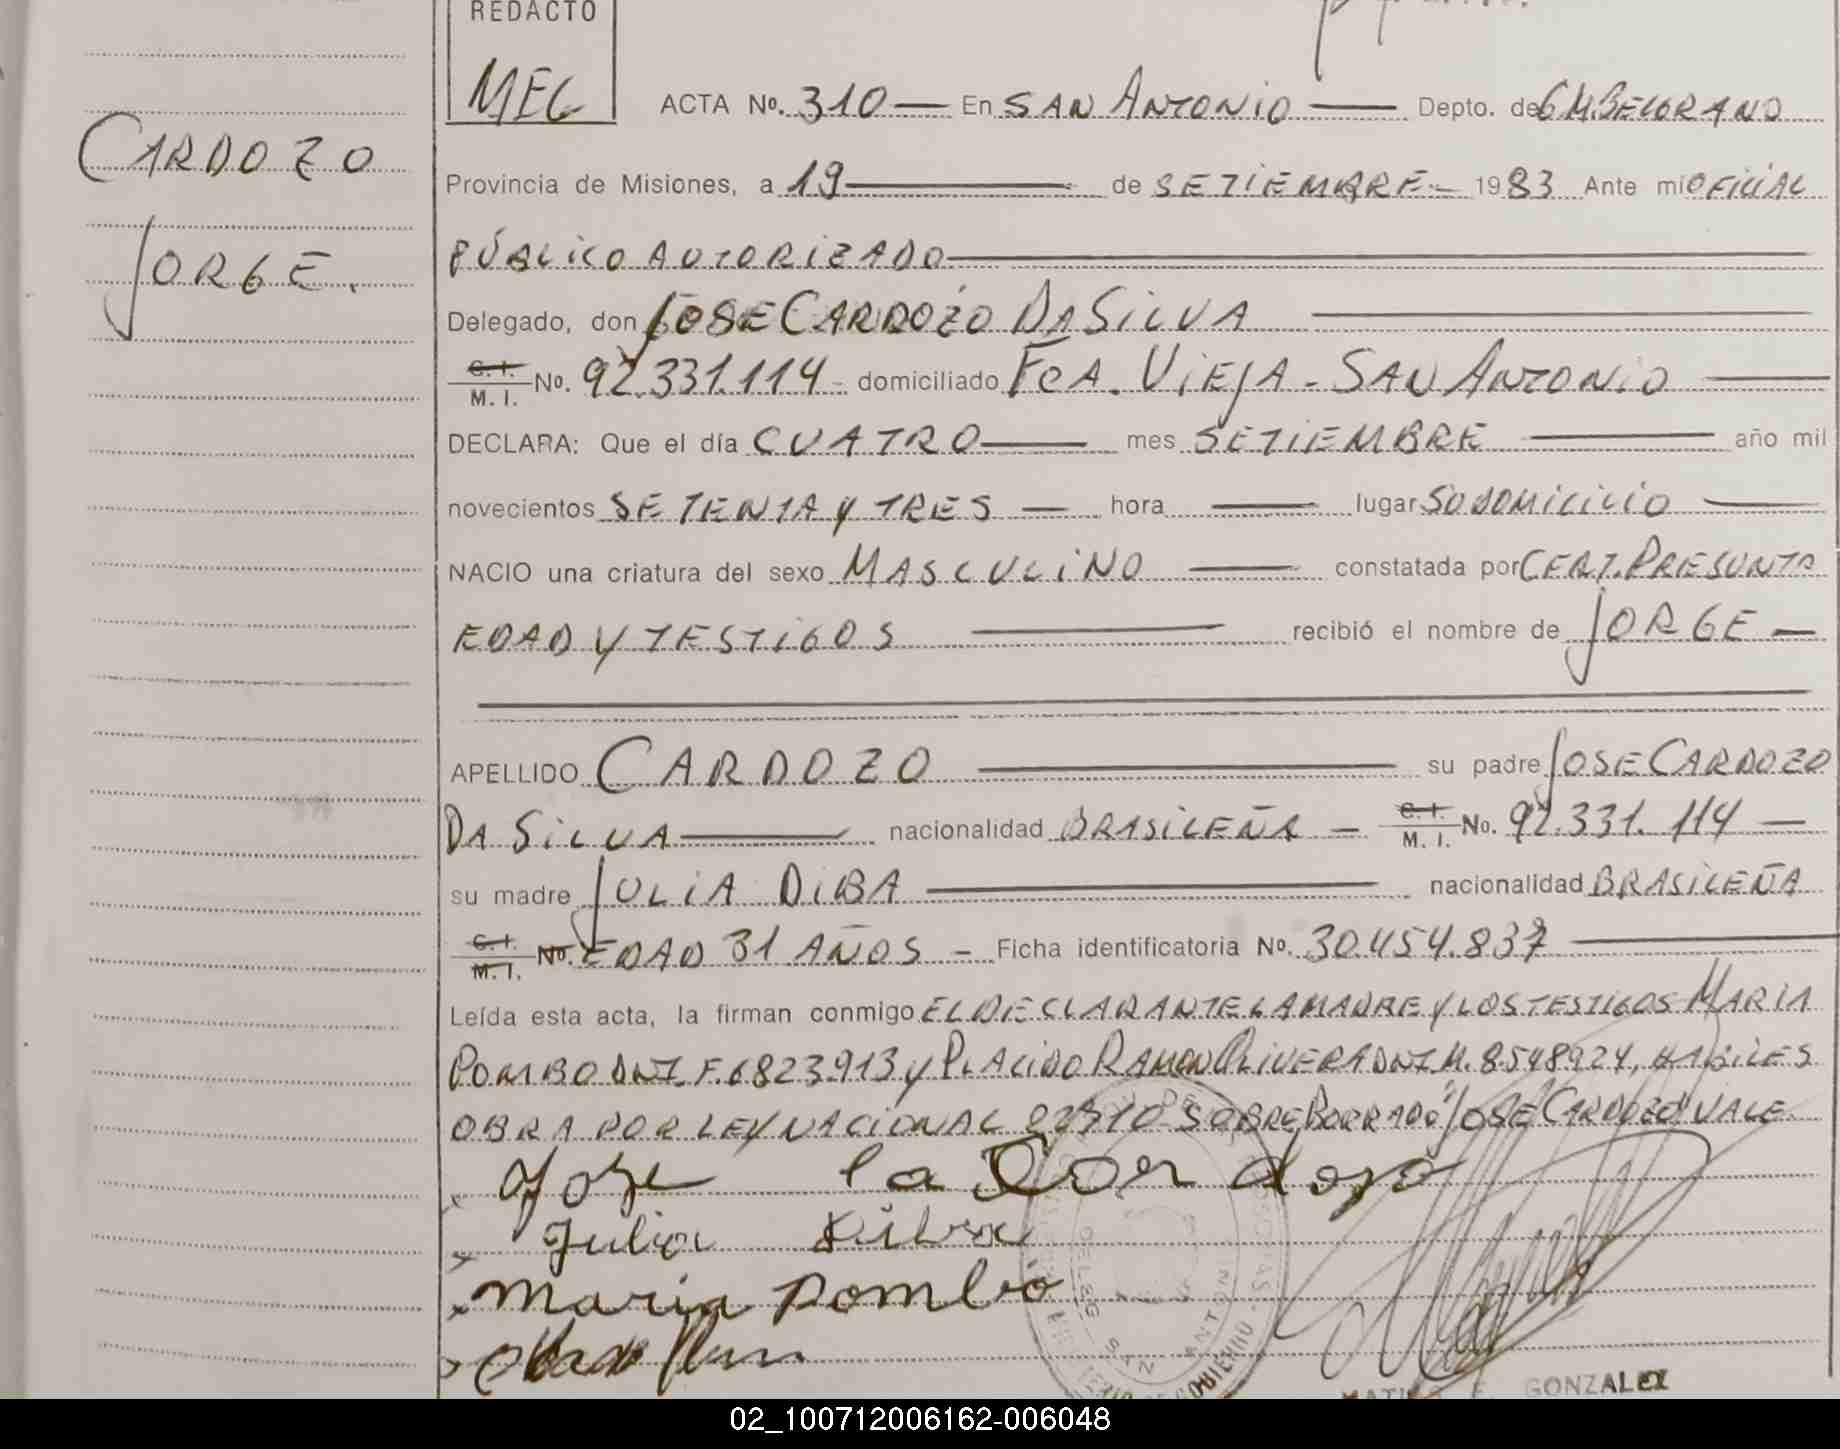 REDACTO
MEG
CARDOZO
JORGE.
ACTA Nº. 310 — En SAN ANTONIO — Depto. de G M. BELGRANO
Provincia de Misiones, a 19 — de SETIEMBRE — 1983 Ante mi OFICIAL
PÚBLICO AUTORIZADO
Delegado, don JOSE CARDOZO DA SILVA
C. I. M. I. No. 92.331.114 - domiciliado FCA. VIEJA - SAN ANTONIO —
DECLARA: Que el día CUATRO — mes SETIEMBRE — año mil
novecientos SETENTA Y TRES — hora — lugar SU DOMICILIO —
NACIO una criatura del sexo MASCULINO — constatada por CERT. PRESUNTA
EDAD Y TESTIGOS — recibió el nombre de JORGE —
APELLIDO CARDOZO — su padre JOSE CARDOZO
DA SILVA — nacionalidad BRASILEÑA — C. I. M. I. No. 92.331.114 —
su madre JULIA DIBA — nacionalidad BRASILEÑA
C. I. M. I. No. EDAD 31 AÑOS - Ficha identificatoria No. 30.454.837 —
Leída esta acta, la firman conmigo EL DECLARANTE LA MADRE Y LOS TESTIGOS MARIA
POMBO DNI. F. 6823.913 y PLACIDO RAMON OLIVERA DNI M. 8.548924, HABILES
OBRA POR LEY NACIONAL 22510 - SOBRE BORRADO "JOSE CARDOZO" VALE.
Jose la Cordozo
Julia Diba
Maria Pombo
GONZALEZ
02_100712006162-006048